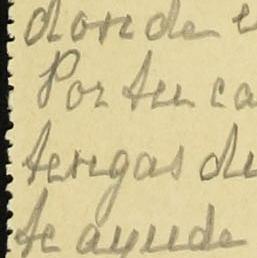 donde e
Por tu ca
tengas di
te ayude